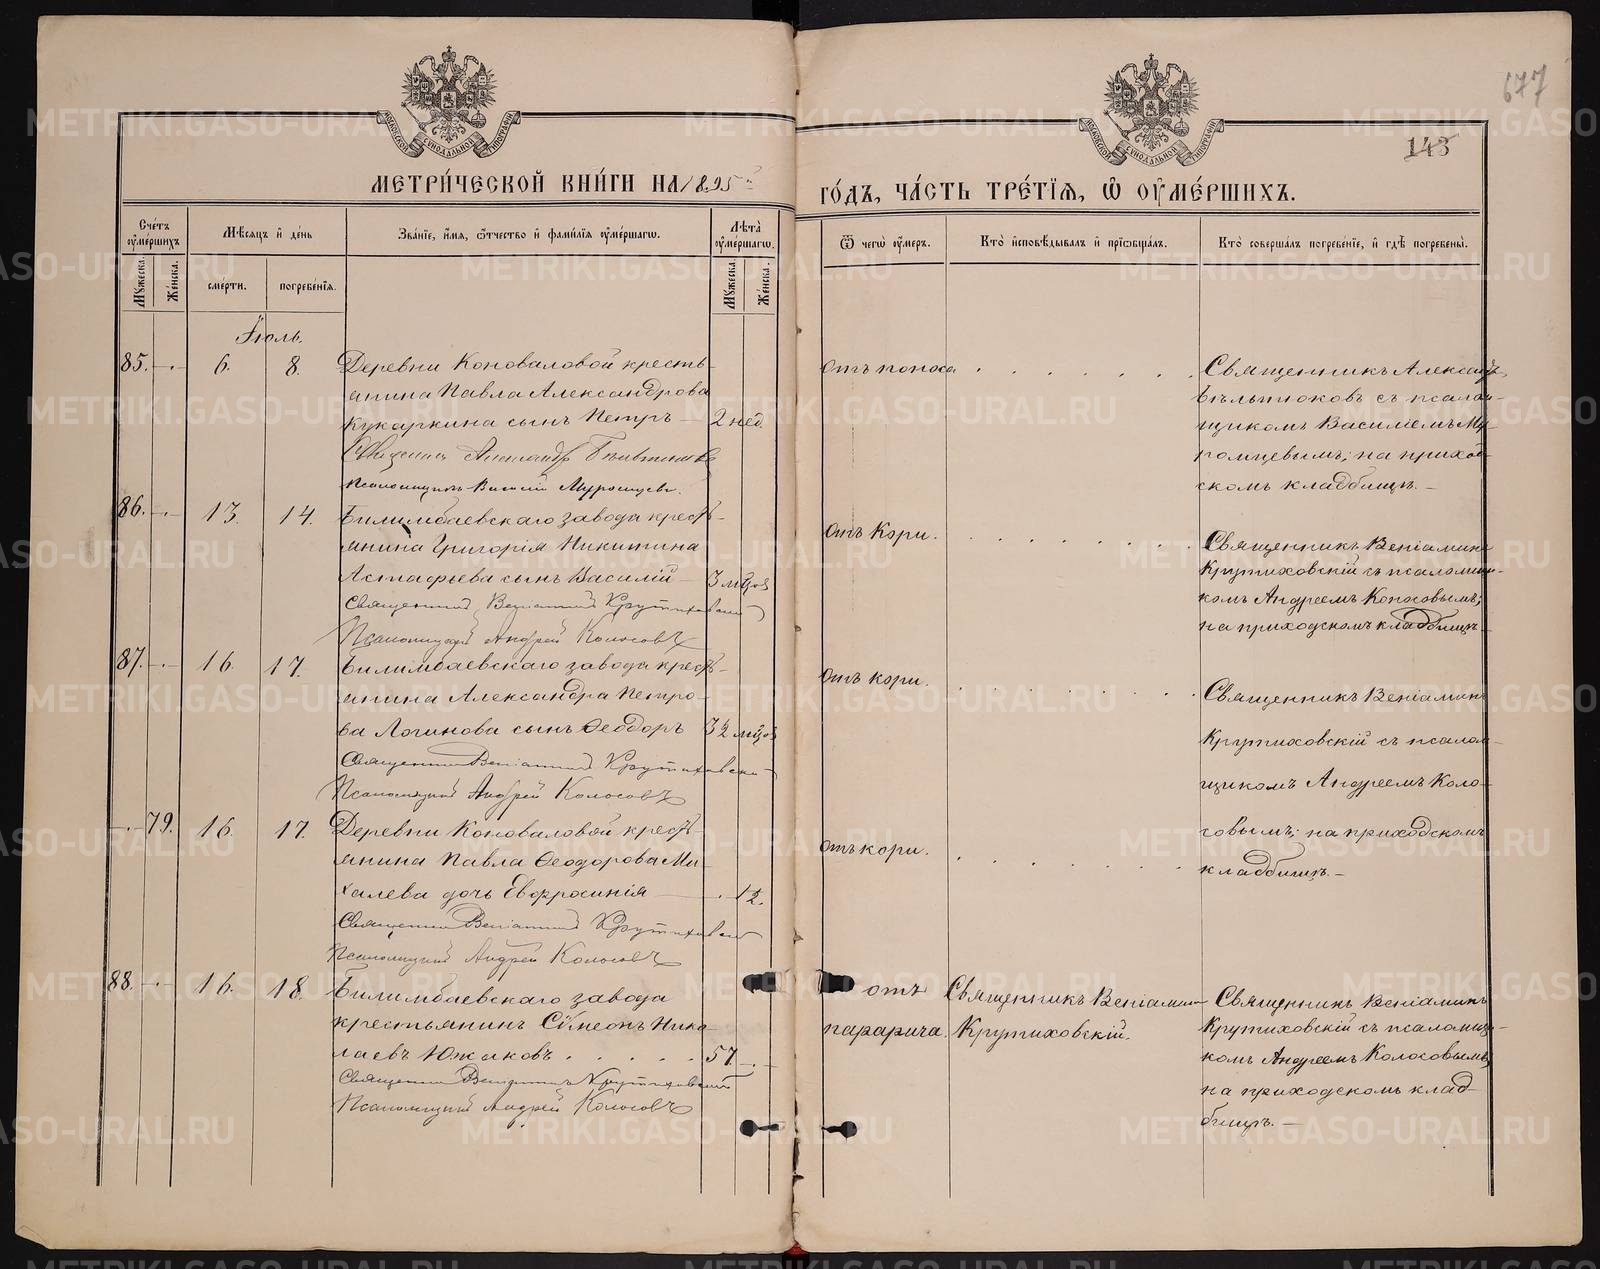 677
143
МОСКОВСКОЙ СУНОДАЛЬНОЙ ТИПОГРАФІИ
МОСКОВСКОЙ СУНОДАЛЬНОЙ ТИПОГРАФІИ
МЕТРИ́ЧЕСКОЙ КНИ́ГИ НА 1895й
ГО́ДЪ, ЧА́СТЬ ТРЕ́ТІѦ, Ѡ҆ ОУ҆МЕ́РШИХЪ.
Сче́тъ оу҆ме́ршихъ
Мꙋжеска.
Же́нска.
Мѣ́сяцъ и҆ де́нь
сме́рти.
погребе́нїѧ.
Зва́нїе, и҆́мѧ, ѻ҆́тчество и҆ фами́лїѧ оу҆ме́ршагѡ.
Лѣ́та оу҆ме́ршагѡ.
Мꙋжеска.
Же́нска.
Ѿ чегѡ̀ оу҆́меръ.
Кто̀ и҆сповѣ́дывалъ и҆ прїѡбща́лъ.
Кто̀ соверша́лъ погребе́нїе, и҆ гдѣ̀ погребены̀.
Іюль.
85. -.- 6. 8. Деревни Коноваловой кресть-
янина Павла Александрова
Кукаркина сынъ Петръ — 2 нед.
Священникъ Александръ
Псаломщикъ Василій Муромцевъ.
Отъ поноса
Священникъ Александръ
Бѣльтюковъ съ псалом-
щикомъ Василіемъ Му-
ромцевымъ; на приход-
скомъ кладбищѣ. —
86. -.- 13. 14. Билимбаевскаго завода кресть-
янина Григорія Никитина
Астафьева сынъ Василій — 3 мѣцовъ
Священникъ Веніаминъ Крутиховский
Псаломщикъ Андрей Колосовъ
Отъ Кори.
Священникъ Веніаминъ
Крутиховскій съ псаломщи-
комъ Андреемъ Колосовымъ;
на приходскомъ кладбищѣ.
87. -.- 16. 17. Билимбаевскаго завода кресть-
янина Александра Петро-
ва Логинова сынъ Ѳеодоръ 3½ мѣцовъ
Священникъ Веніаминъ Крутиховский
Псаломщикъ Андрей Колосовъ
Отъ кори.
Священникъ Веніаминъ
Крутиховскій съ псалом-
щикомъ Андреемъ Коло-
совымъ; на приходскомъ
кладбищѣ. —
-.- 79. 16. 17. Деревни Коноваловой кресть-
янина Павла Ѳеодорова Ми-
халева дочь Евфросинія — . 12.
Священникъ Веніаминъ Крутиховский
Псаломщикъ Андрей Колосовъ
Отъ кори.
88. -.- 16. 18. Билимбаевскаго завода
крестьянинъ Сѵмеонъ Нико-
лаевъ Южаковъ . . . . . 57. -.-
Священникъ Веніаминъ Крутиховский
Псаломщикъ Андрей Колосовъ
отъ
паралича.
Священникъ Веніаминъ
Крутиховскій.
Священникъ Веніаминъ
Крутиховскій съ псаломщи-
комъ Андреемъ Колосовымъ,
на приходскомъ клад-
бищѣ. —
METRIKI.GASO-URAL.RU